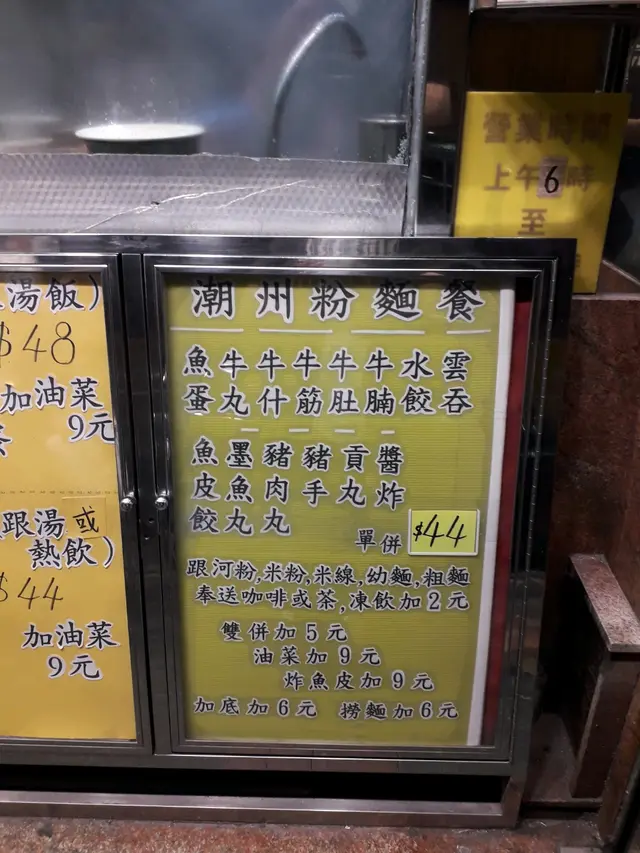 營業時間
上午6時
至
湯飯)
$48
加油菜
9元
跟湯或
熱飲)
$44
加油菜
9元
潮州粉麵餐
魚蛋 牛丸 牛什 牛筋 牛肚 牛腩 水餃 雲吞
魚皮餃 墨魚丸 豬肉丸 豬手 貢丸 醬炸
單併 $44
跟河粉,米粉,米線,幼麵,粗麵
奉送咖啡或茶,凍飲加2元
雙併加5元
油菜加9元
炸魚皮加9元
加底加6元 撈麵加6元